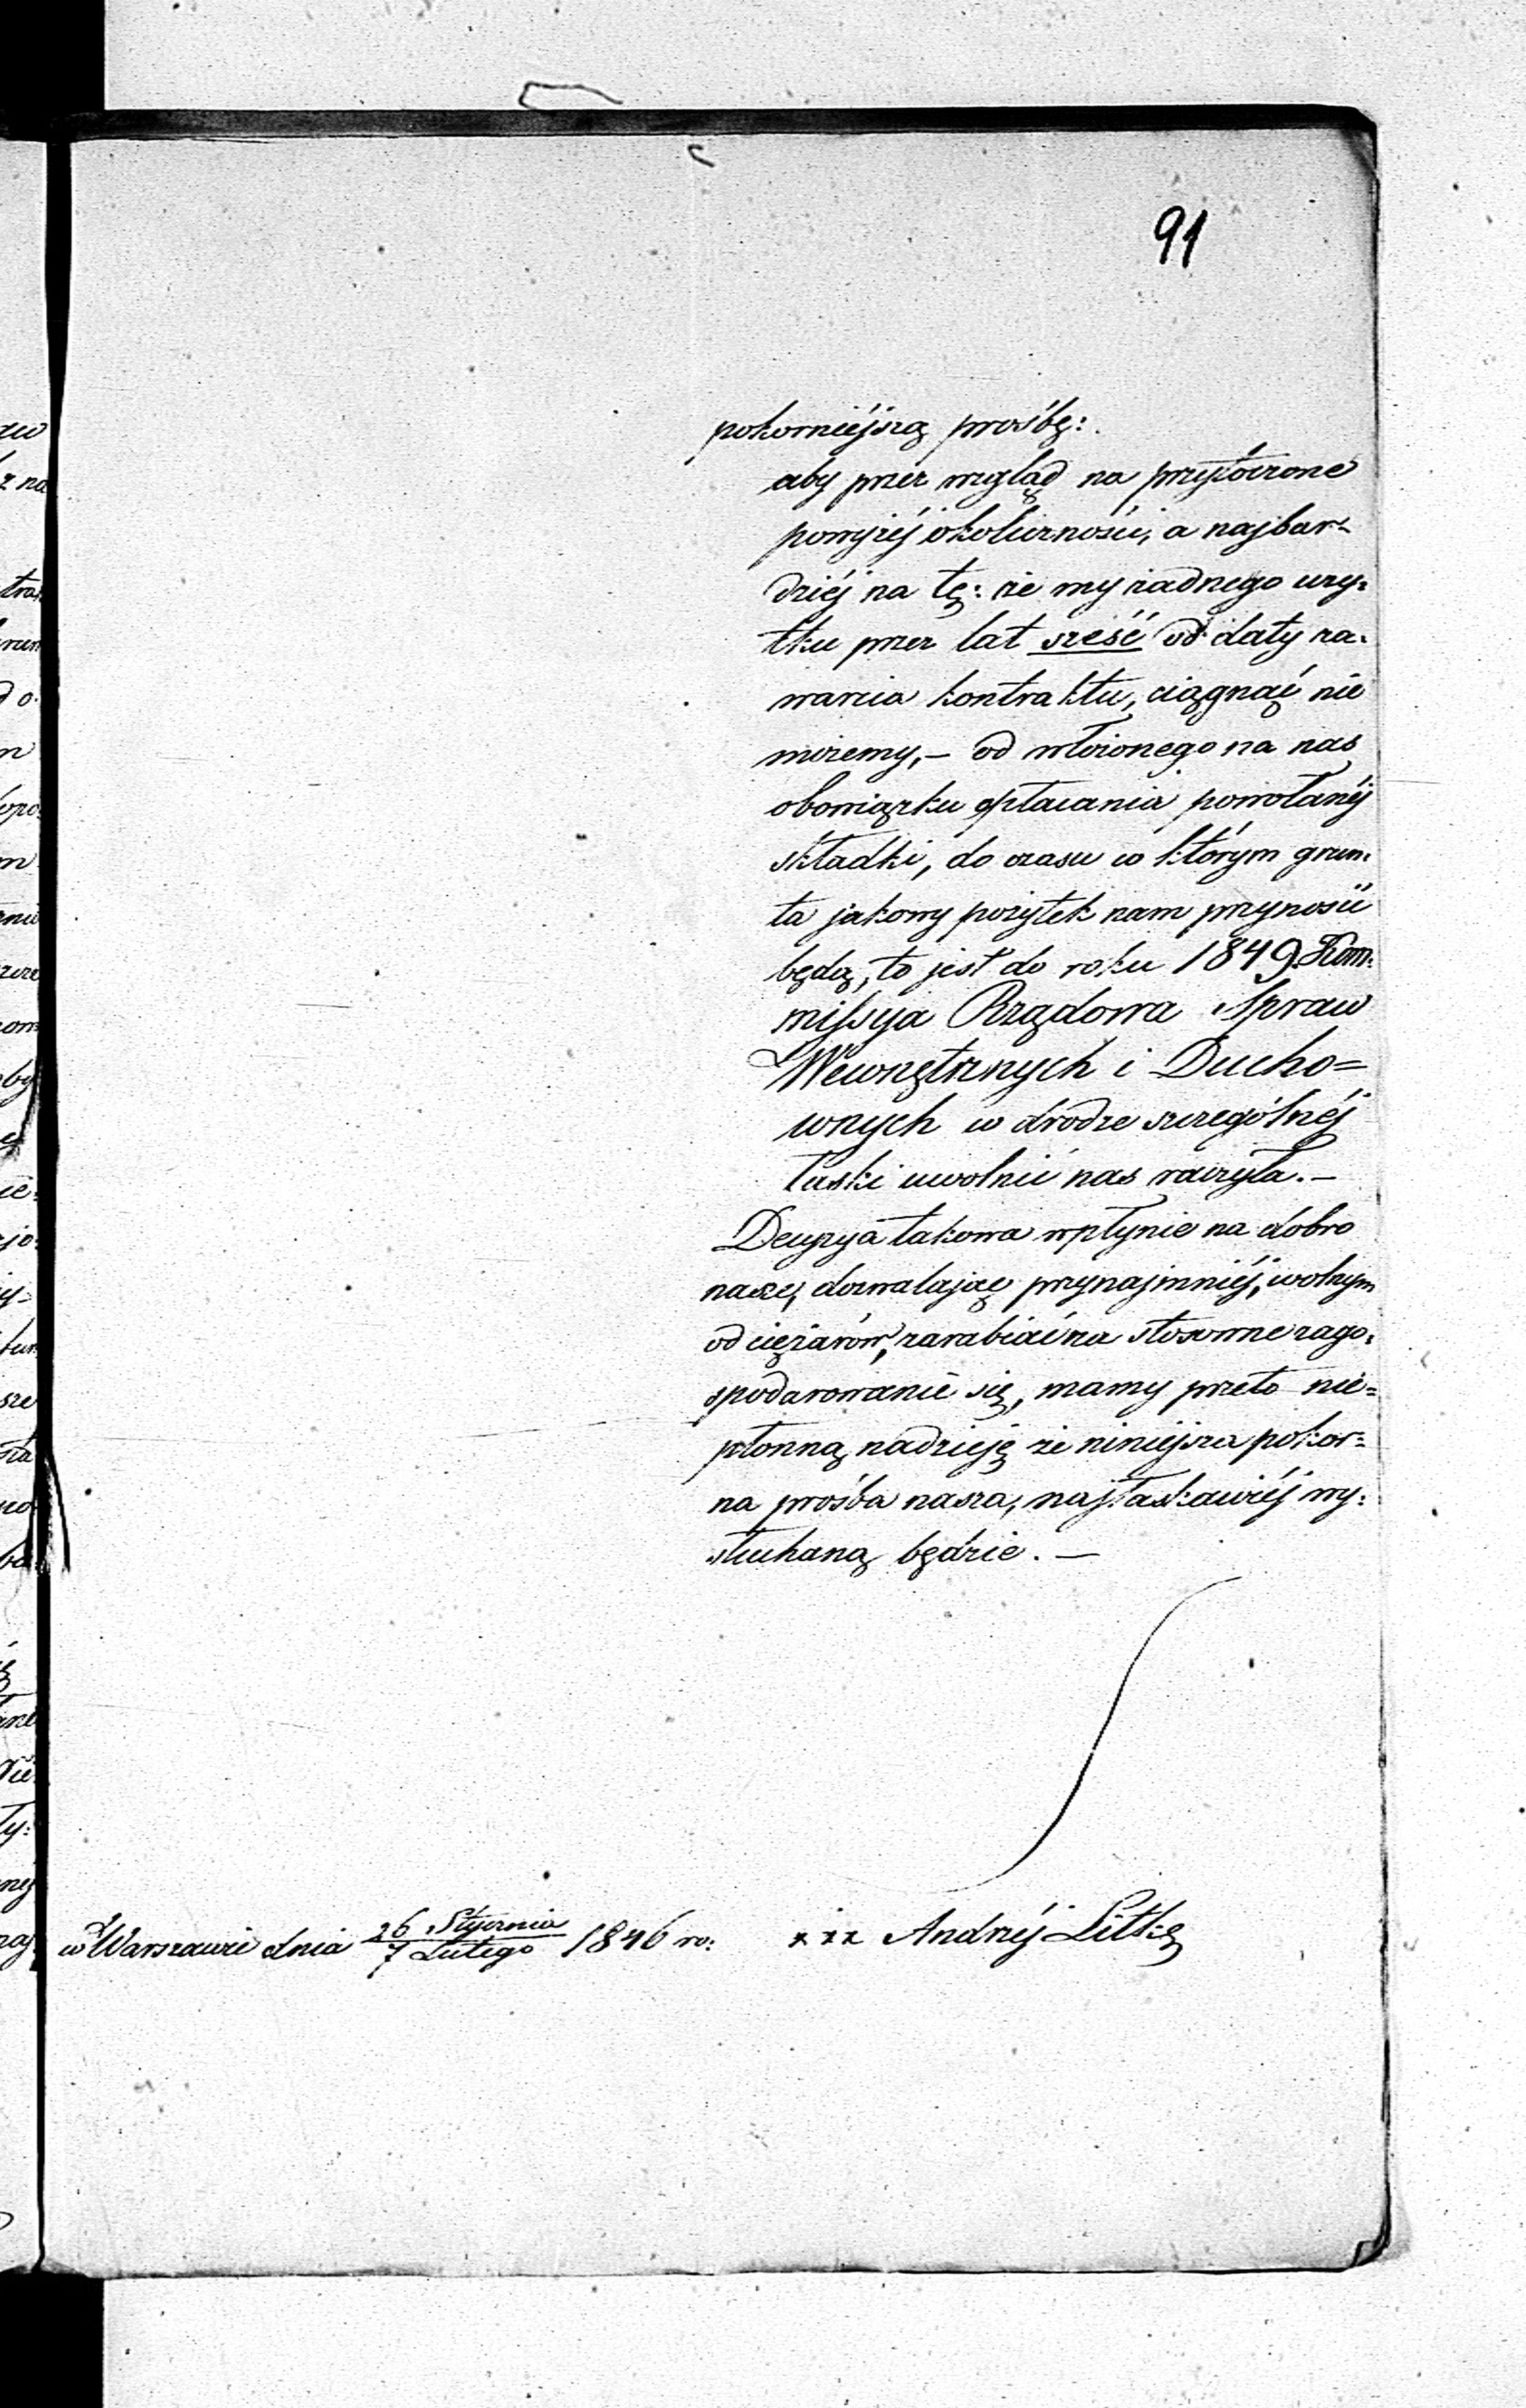 91
pokorniejszą prośbę:
aby przez wzgląd na przytoczone
powyżéj okoliczności, a najbar=
dziéj na tę: że my żadnego uży=
tku przez lat sześć od daty za=
warcia kontraktu, ciągnąć nie
możemy, – od włożonego na nas
obowiązku opłacania powołanéj
składki, do czasu w którym grun=
ta jakowy pożytek nam przynosić
będą, to jest do roku 1849. Kom=
missya Rządowa Spraw
Wewnętrznych i Ducho=
wnych w drodze szczególnéj
łaski uwolnić nas raczyła. –
Decyzya takowa wpłynie na dobro
nasze, dozwalając przynajmniéj, wolnym
od ciężarów, zarabiać na stosowne zago=
spodarowanie się, mamy przeto nie=
płonną nadzieję że niniejsza pokor=
na prośba nasza, najłaskawiéj wy=
słuchaną będzie. –
w Warszawie dnia 26 Stycznia / 7 Lutego 1846 ro: xxx Andrzéj Litke